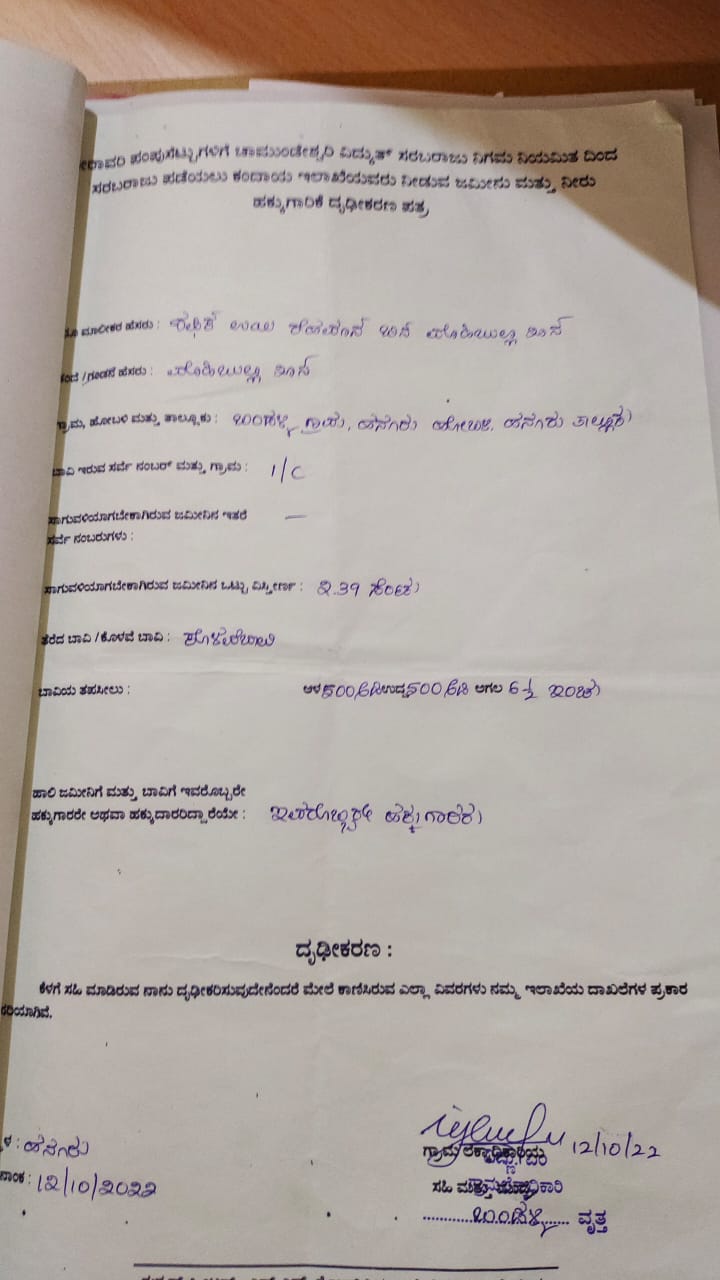 ನೀರಾವರಿ ಪಂಪುಸೆಟ್ಟುಗಳಿಗೆ ಚಾಮುಂಡೇಶ್ವರಿ ವಿದ್ಯುತ್ ಸರಬರಾಜು ನಿಗಮ ನಿಯಮಿತ ದಿಂದ
ಸರಬರಾಜು ಪಡೆಯಲು ಕಂದಾಯ ಇಲಾಖೆಯವರು ನೀಡುವ ಜಮೀನು ಮತ್ತು ನೀರು
ಹಕ್ಕುಗಾರಿಕೆ ದೃಢೀಕರಣ ಪತ್ರ
ಮಾಲೀಕರ ಹೆಸರು :
ತಂದೆ / ಗಂಡನ ಹೆಸರು :
ಗ್ರಾಮ, ಹೋಬಳಿ ಮತ್ತು ತಾಲ್ಲೂಕು : ಗ್ರಾಮ, ಹನೂರು ಹೋಬಳಿ, ಹನೂರು ತಾಲ್ಲೂಕು
ಬಾವಿ ಇರುವ ಸರ್ವೆ ನಂಬರ್ ಮತ್ತು ಗ್ರಾಮ : 1/C
ಸಾಗುವಳಿಯಾಗಬೇಕಾಗಿರುವ ಜಮೀನಿನ ಇತರೆ —
ಸರ್ವೆ ನಂಬರುಗಳು :
ಸಾಗುವಳಿಯಾಗಬೇಕಾಗಿರುವ ಜಮೀನಿನ ಒಟ್ಟು ವಿಸ್ತೀರ್ಣ : 2.39 ಸೆಂಟು
ತೆರೆದ ಬಾವಿ / ಕೊಳವೆ ಬಾವಿ : ಕೊಳವೆಬಾವಿ
ಬಾವಿಯ ತಪಸೀಲು : ಆಳ 500 ಅಡಿ ಉದ್ದ 500 ಅಡಿ ಅಗಲ 6½ ಇಂಚು
ಹಾಲಿ ಜಮೀನಿಗೆ ಮತ್ತು ಬಾವಿಗೆ ಇವರೊಬ್ಬರೇ
ಹಕ್ಕುಗಾರರೇ ಅಥವಾ ಹಕ್ಕುದಾರರಿದ್ದಾರೆಯೇ : ಇವರೊಬ್ಬರೇ ಹಕ್ಕುಗಾರರು
ದೃಢೀಕರಣ :
ಕೆಳಗೆ ಸಹಿ ಮಾಡಿರುವ ನಾನು ದೃಢೀಕರಿಸುವುದೇನೆಂದರೆ ಮೇಲೆ ಕಾಣಿಸಿರುವ ಎಲ್ಲಾ ವಿವರಗಳು ನಮ್ಮ ಇಲಾಖೆಯ ದಾಖಲೆಗಳ ಪ್ರಕಾರ
ಸರಿಯಾಗಿವೆ.
ಸ್ಥಳ : ಹನೂರು
ದಿನಾಂಕ : 12/10/2022
12/10/22
ಸಹಿ ಮತ್ತು
ವೃತ್ತ